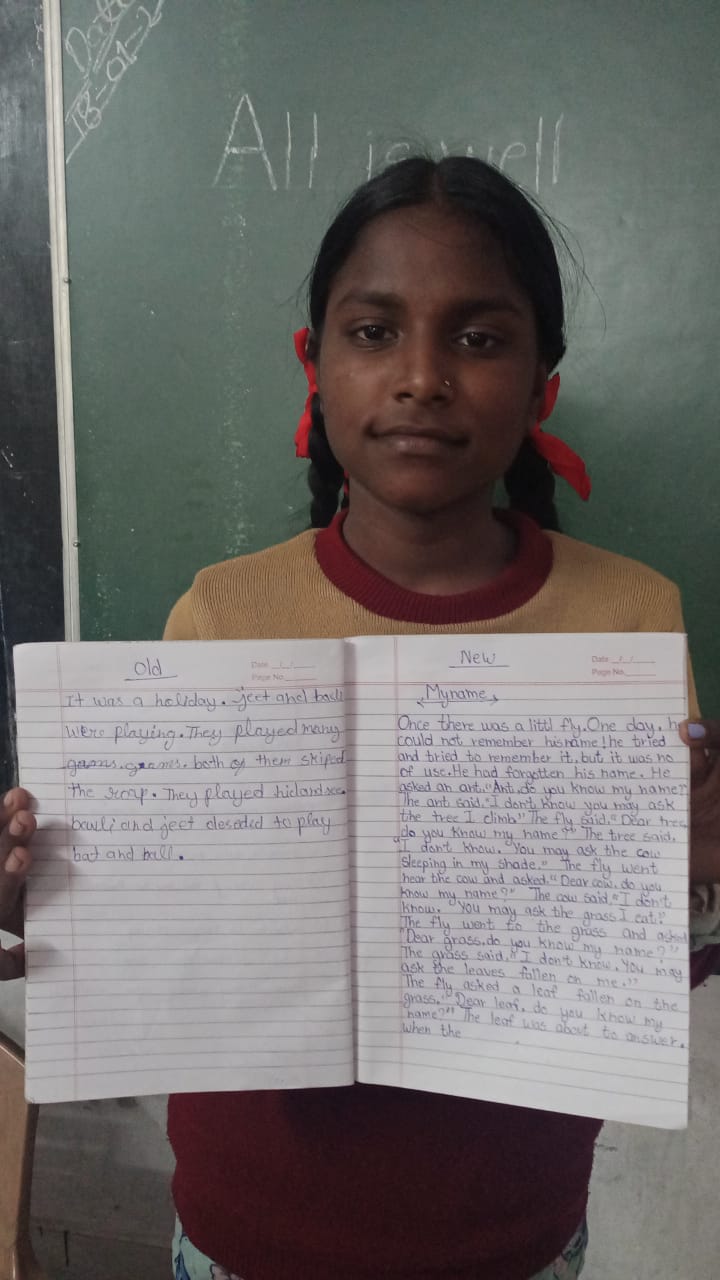 Date
18-01-2
All is well
Old
Date __/__/____
Page No.______
It was a holiday. jeet and bauli
were playing. They played many
games. both of them skiped
the roap. They played hidandsee.
bauli and jeet desaded to play
bat and ball.
New
Date __/__/____
Page No.______
My name
Once there was a littl fly. One day, h
could not remember his name! he tried
and tried to remember it, but it was no
of use. He had forgotten his name. He
asked an ant. "Ant, do you know my name?
The ant said. "I don't know you may ask
the tree I climb." The fly said. "Dear tree,
do you know my name?" The tree said,
"I don't know. You may ask the cow
sleeping in my shade." The fly went
near the cow and asked. "Dear cow, do you
know my name?" The cow said. "I don't
know. You may ask the grass I eat."
The fly went to the grass and asked
"Dear grass, do you know my name?"
The grass said, "I don't know. You may
ask the leaves fallen on me."
The fly asked a leaf fallen on the
grass. "Dear leaf, do you know my
name?" The leaf was about to answer.
when the